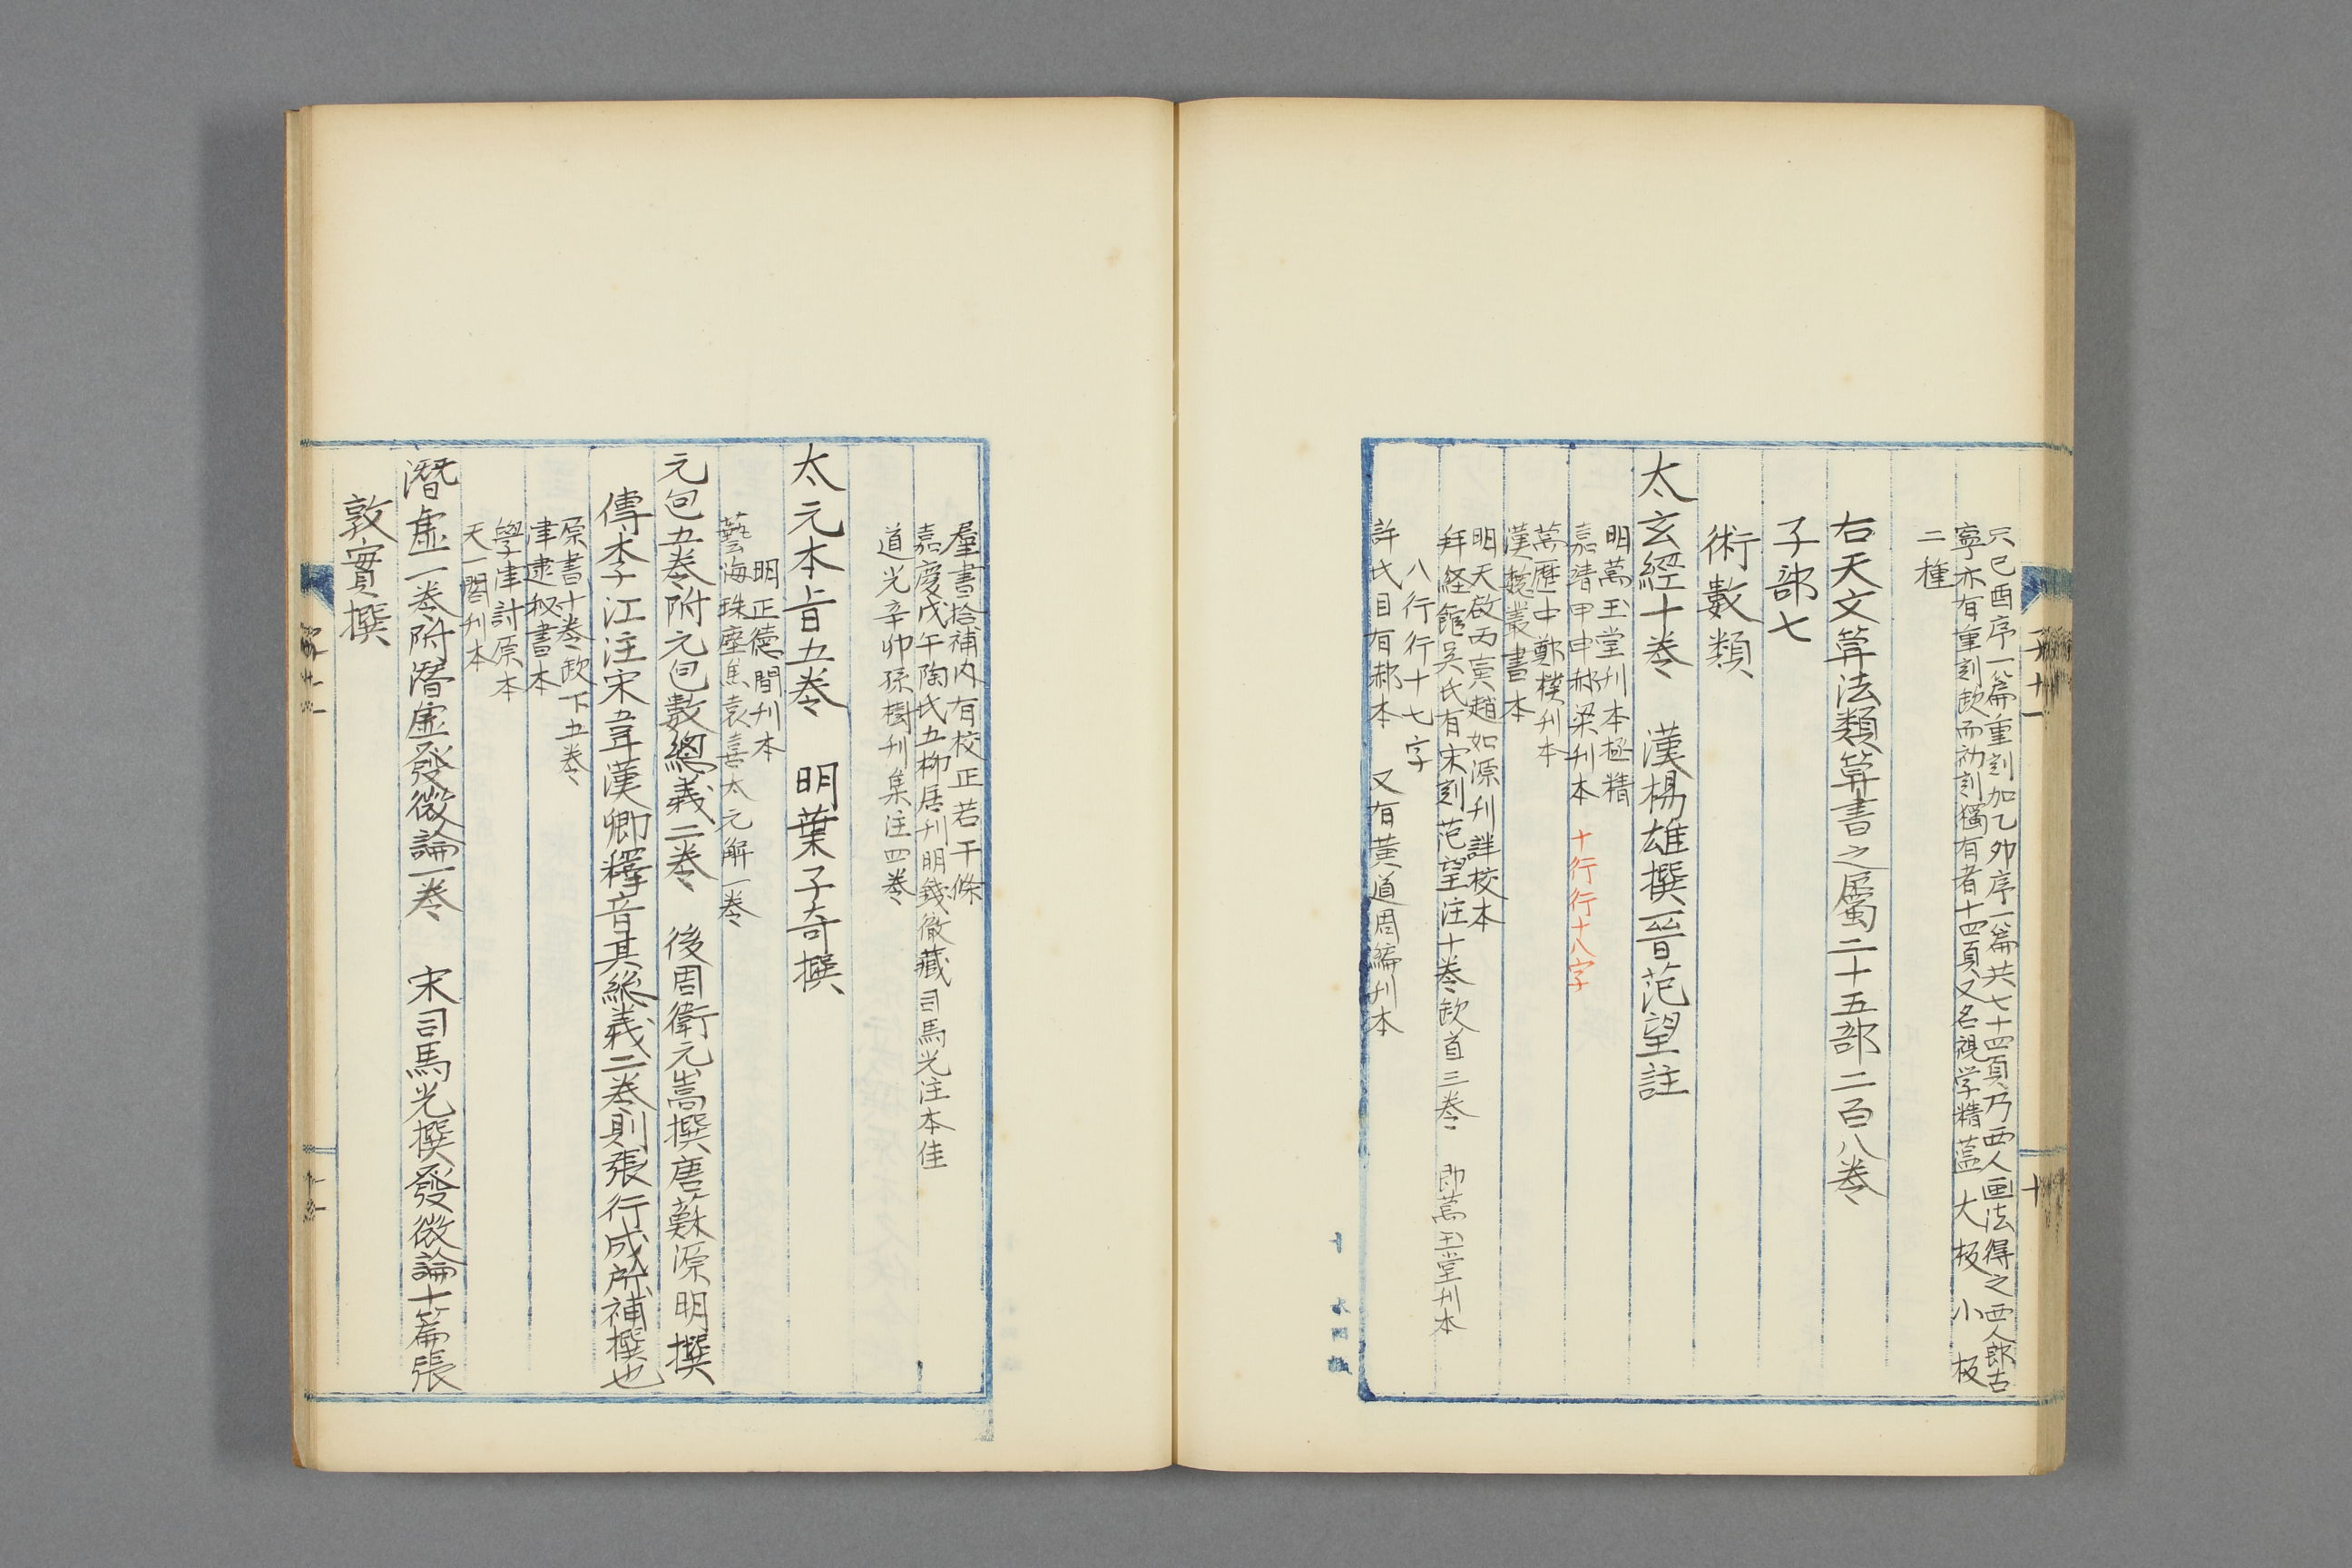 只己酉序一篇重刻加乙卯序一篇共七十四頁乃西人画法得之西人郎古
寧亦有重刻故而初刻獨有者十四頁又名視学精蘊大板小板
二種
右天文筭法類筭書之屬二十五部二百八卷
子部七
術數類
太玄經十卷　漢楊雄撰晉范望註
明萬玉堂刊本極精
嘉靖甲申郝梁刊本　十行行十八字
萬歷中鄭樸刊本
漢魏叢書本
明天啟丙寅趙如源刊詳校本
拜経館吴氏有宋刻范望注十卷欽首三卷　即萬玉堂刊本
八行行十七字
許氏目有郝本　又有黄道周編刊本
子十一
十
羣書拾補内有校正若干條
嘉慶戊午陶氏五柳居刊明錢徹藏司馬光注本佳
道光辛卯孫樹刊集注四卷
太元本旨五卷　明葉子奇撰
明正德間刊本
藝海珠塵焦袁熹太元解一卷
元包五卷附元包數總義二卷　後周衛元嵩撰唐蘇源明撰
傳李江注宋韋漢卿釋音其総義二卷則張行成所補撰也
原書十卷欽下五卷
津逮秘書本
學津討原本
天一閣刊本
潛虚一卷附潛虚發微論一卷　宋司馬光撰發微論十篇張
敦實撰